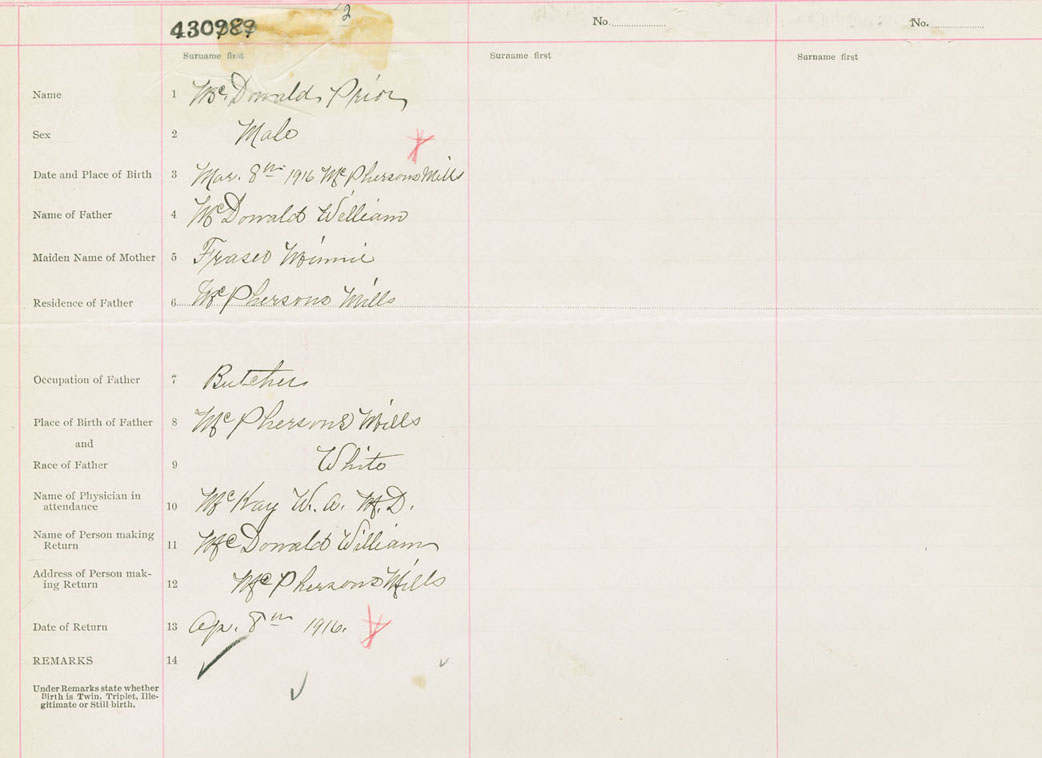 2
430987 No. No.
Surname first Surname first Surname first
Name 1 McDonald, Prior
Sex 2 Male
Date and Place of Birth 3 Mar. 8th 1916 McPhersons Mills
Name of Father 4 McDonald William
Maiden Name of Mother 5 Fraser Winnie
Residence of Father 6 McPhersons Mills
Occupation of Father 7 Butcher
Place of Birth of Father 8 McPhersons Mills
and
Race of Father 9 White
Name of Physician in
attendance 10 McKay W. A. M.D.
Name of Person making
Return 11 McDonald William
Address of Person mak-
ing Return 12 McPhersons Mills
Date of Return 13 Ap. 8th 1916.
REMARKS 14
Under Remarks state whether
Birth is Twin, Triplet, Ille-
gitimate or Still birth.